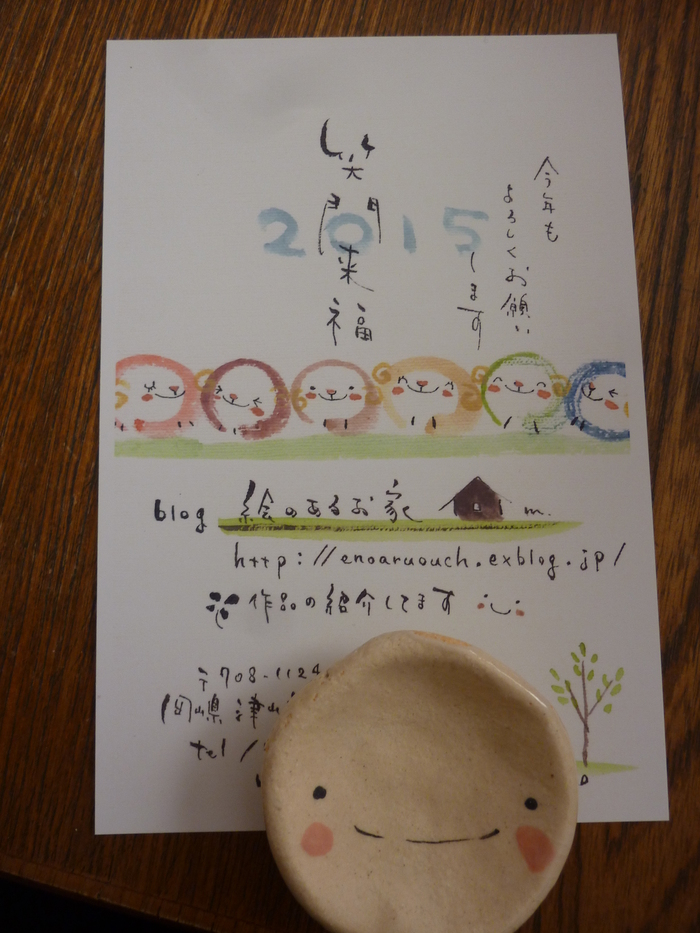 今年も
よろしくお願い
します
笑門来福
2015
blog 絵のあるお家 m.
http://enoaruouch.exblog.jp/
作品の紹介してます
〒708-1124
岡山県 津山
tel /